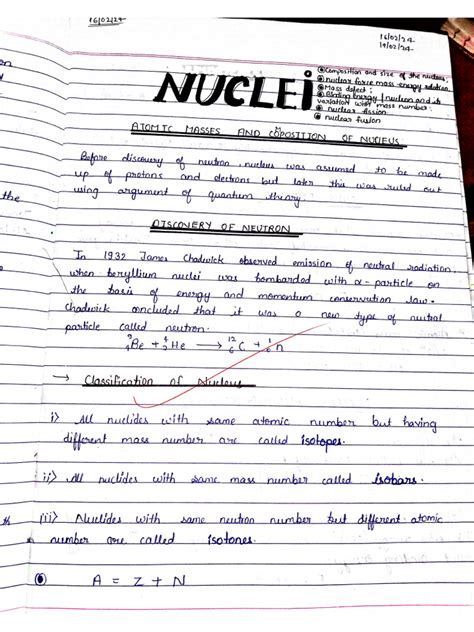 16/02/24
16/02/24
19/02/24
NUCLEi
Composition and size of the nucleus;
nuclear force mass-energy relation
Mass defect;
Binding energy/nucleon and its
variation with mass number.
nuclear fission
nuclear fusion
ATOMIC MASSES AND COPOSITION OF NUCLEUS
Before discovery of neutron, nucleus was assumed to be made
up of protons and electrons but later this was ruled out
using argument of quantum theory.
the
DISCOVERY OF NEUTRON
In 1932 James Chadwick observed emission of neutral radiation
when beryllium nuclei was bombarded with α-particle on
the basis of energy and momentum conservation law.
Chadwick concluded that it was a new type of neutral
particle called neutron.
⁹₄Be + ⁴₂He → ¹²₆C + ¹₀n
→ Classification of Nucleus
i) All nuclides with same atomic number but having
different mass number are called isotopes.
ii) All nuclides with same mass number called isobars.
iii) Nuclides with same neutron number but different atomic
number are called isotones.
A = Z + N